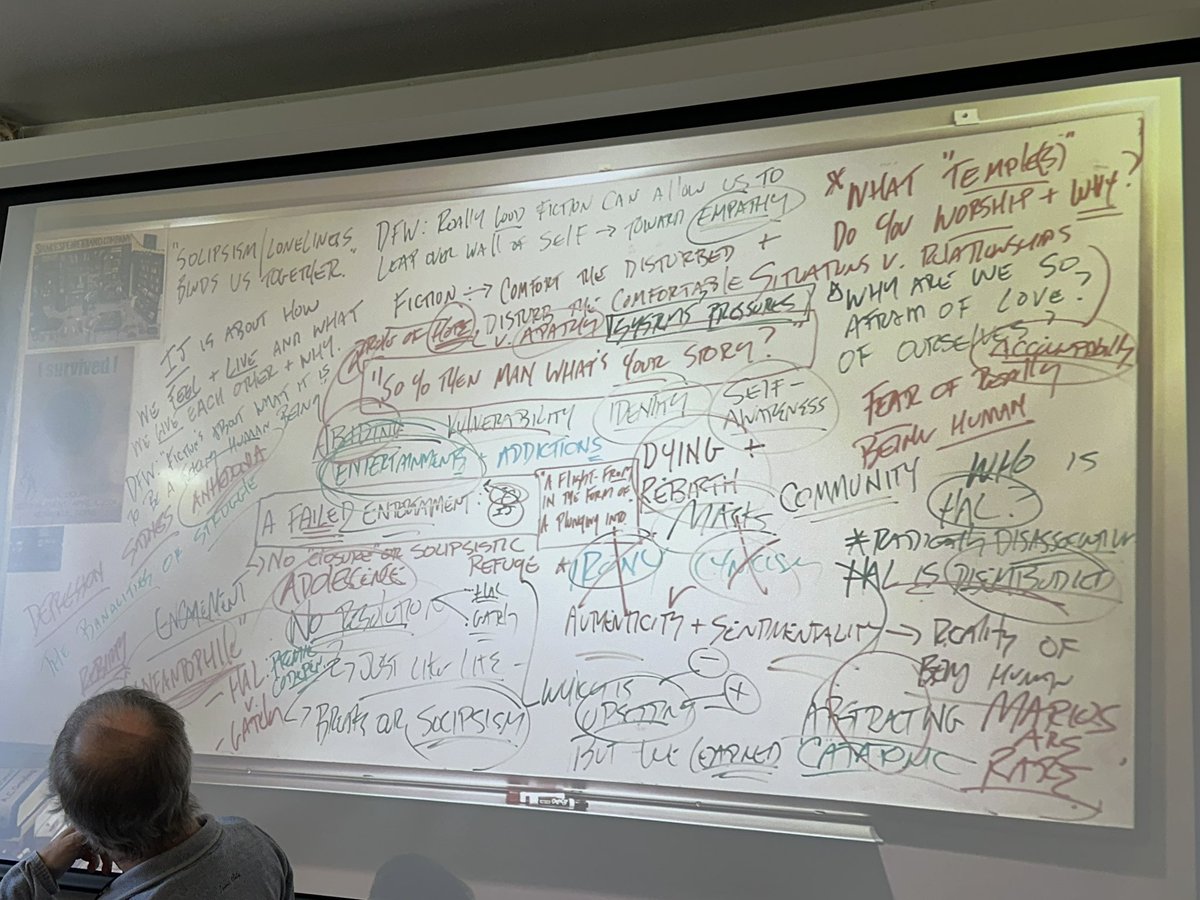 "SOLIPSISM/LONELINESS
BINDS US TOGETHER."
DFW: REALLY GOOD FICTION CAN ALLOW US TO
LEAP OVER WALL OF SELF → TOWARD EMPATHY
* WHAT "TEMPLE(S)"
DO YOU WORSHIP + WHY?
FICTION → COMFORT THE DISTURBED +
DISTURB THE COMFORTABLE
SITUATIONS V. RELATIONSHIPS
HOPE V. APATHY
SYSTEMS PRESSURES
WHY ARE WE SO
AFRAID OF LOVE?
OF OURSELVES?
ACCOUNTABILITY
IJ IS ABOUT HOW
WE FEEL + LIVE AND WHAT
WE GIVE EACH OTHER + WHY.
DFW: "FICTION'S ABOUT WHAT IT IS
TO BE A HUMAN BEING
I survived!
"SO YO THEN MAN WHAT'S YOUR STORY?"
VULNERABILITY
IDENTITY
SELF-
AWARENESS
FEAR OF REALLY
BEING HUMAN
ENTERTAINMENTS + ADDICTIONS
SADNESS
ANHEDONIA
STRUGGLE
DYING +
REBIRTH
"A FLIGHT-FROM
IN THE FORM OF
A PLUNGING INTO
A FAILED ENTERTAINMENT:
MASKS
COMMUNITY
WHO IS
HAL.
DEPRESSION
THE BANALITIES OF
→ NO CLOSURE OR SOLIPSISTIC
REFUGE
ADOLESCENCE
IRONY
CYNICISM
* RADICAL DISASSOCIATION
HAL IS DISEMBODIED
NO RESOLUTION
HAL
GATELY
AUTHENTICITY + SENTIMENTALITY → REALITY OF
BEING HUMAN
- HAL:
- GATELY
→ JUST LIKE LIFE -
→ BREAK OR SOLIPSISM
WHICH IS
UPSETTING
- 
+
BUT THE EARNED CATATONIC
MARIO'S